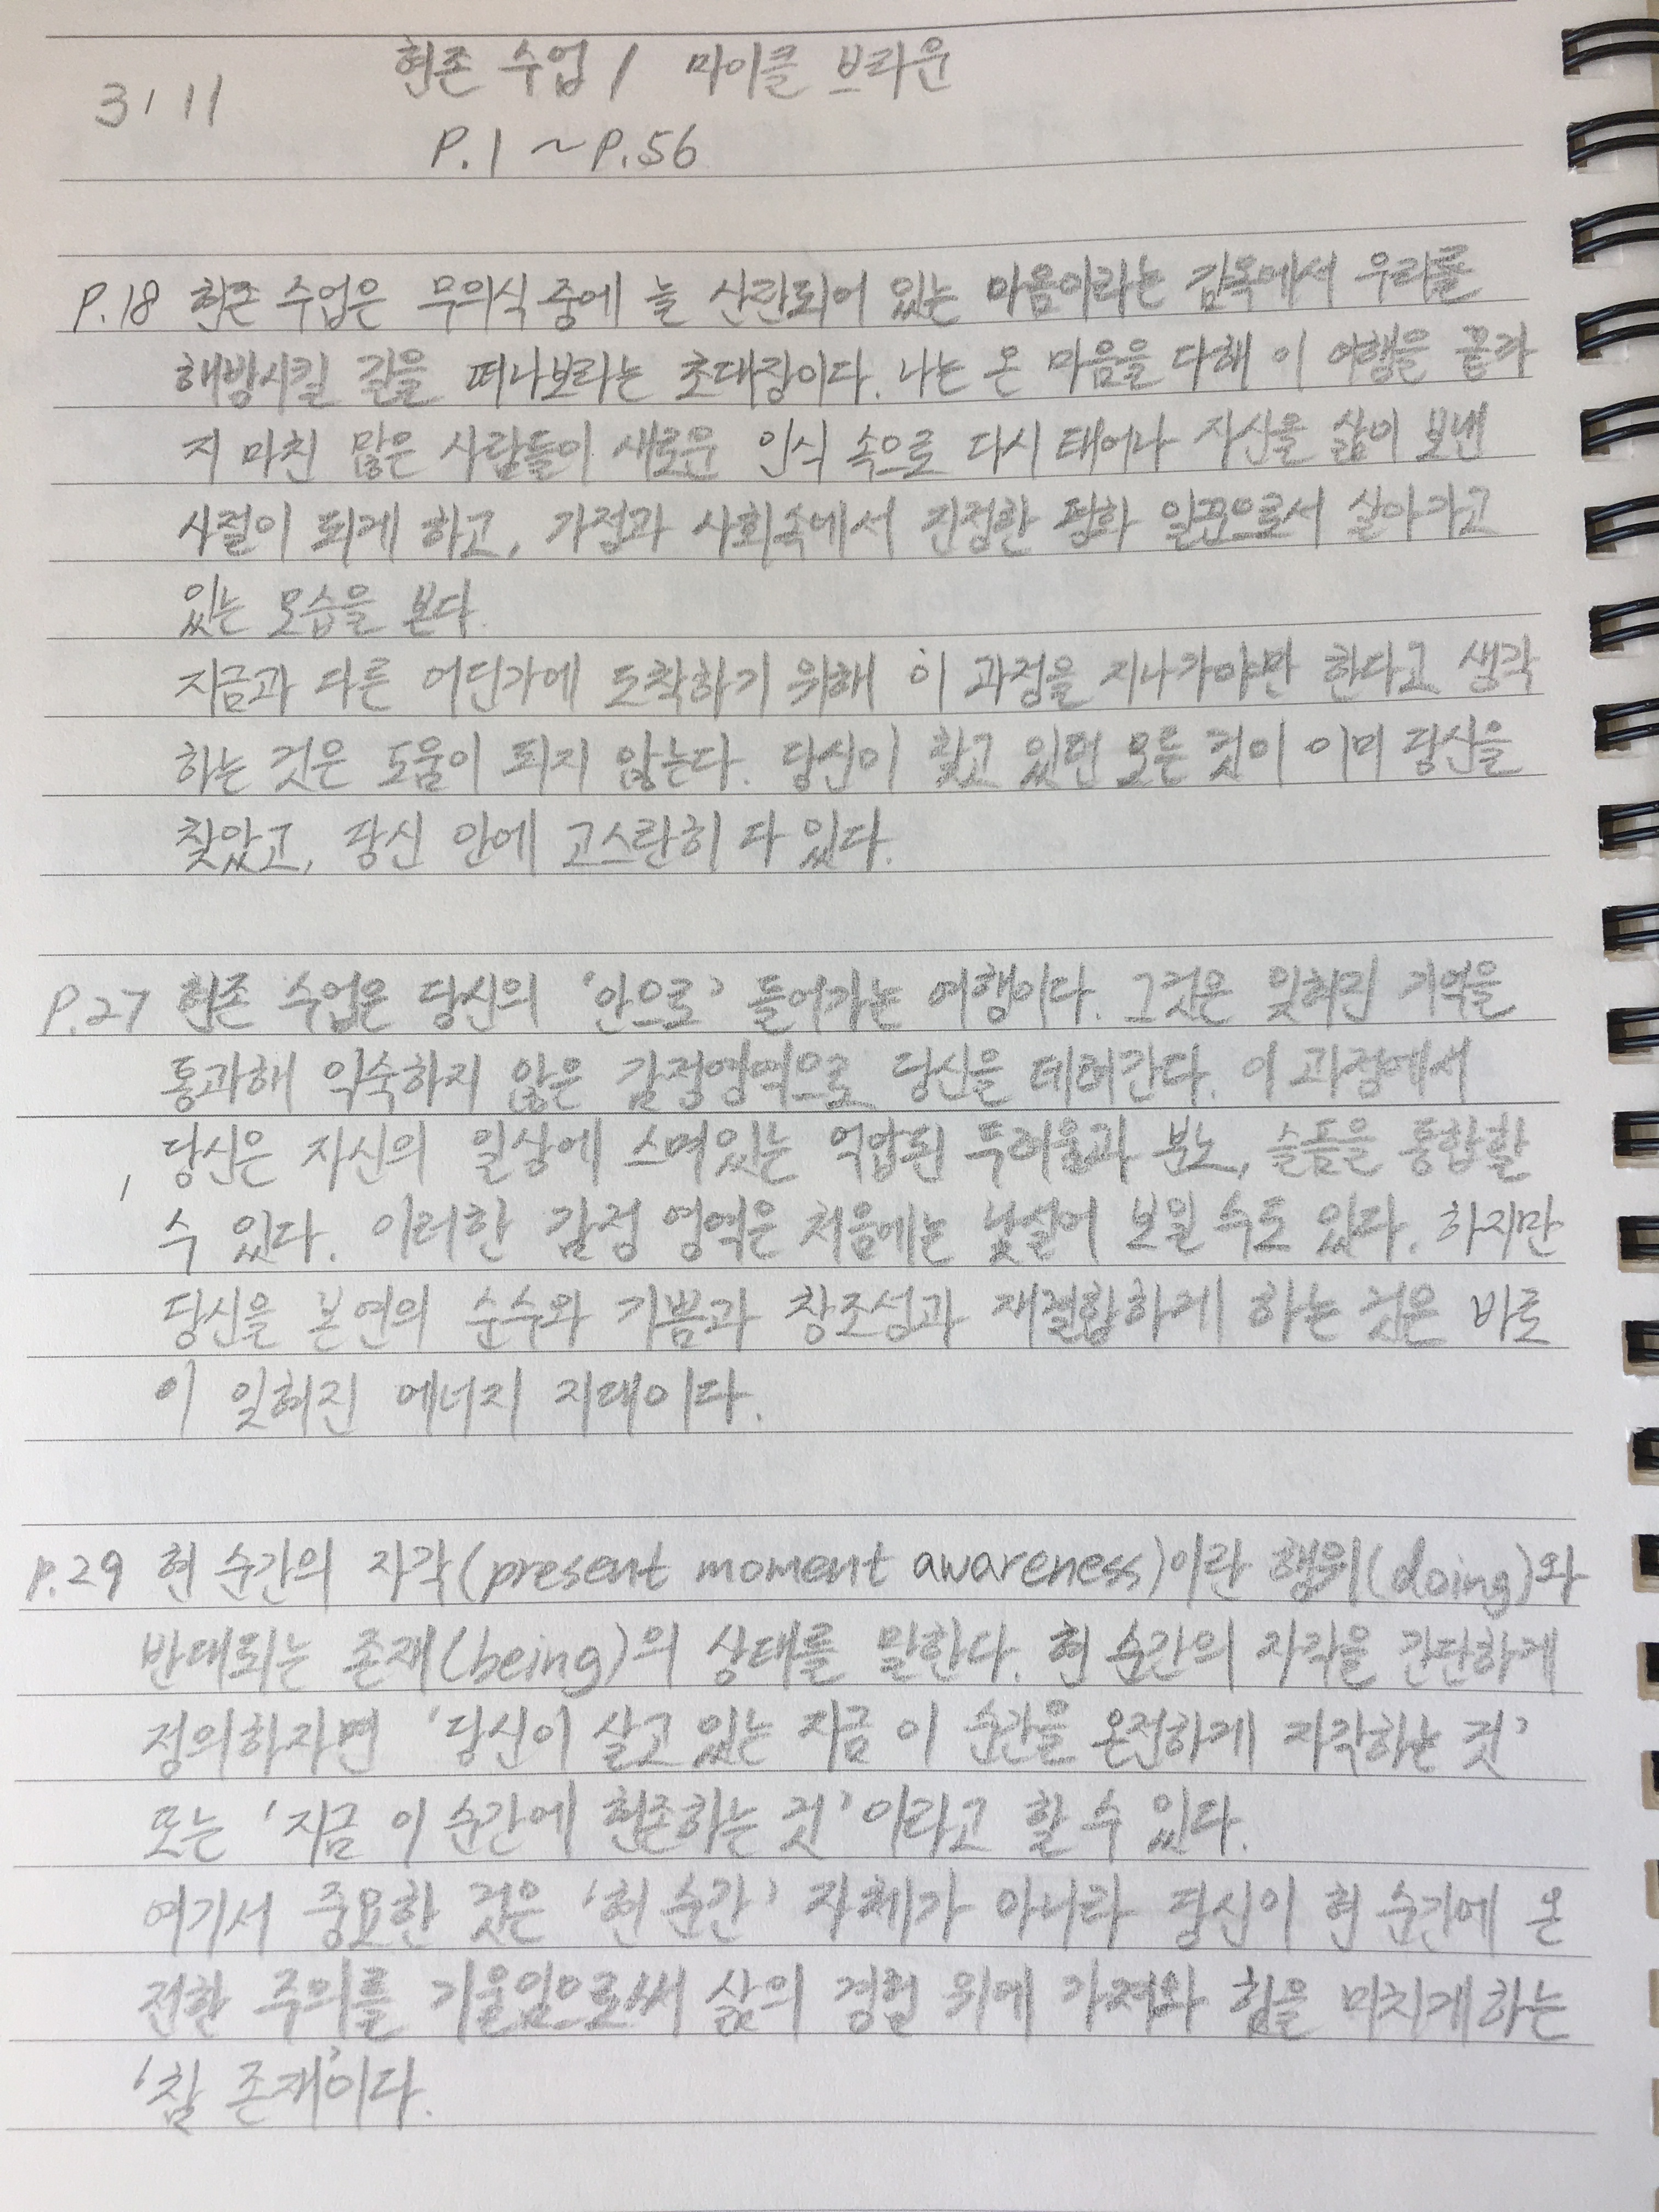 현존 수업 / 마이클 브라운
3/11
P.1 ~ P.56
P.18 현존 수업은 무의식 중에 늘 산란되어 있는 마음이라는 감옥에서 우리를
해방시킬 길을 떠나보라는 초대장이다. 나는 온 마음을 다해 이 여행을 끝까
지 마친 많은 사람들이 새로운 인식 속으로 다시 태어나 자신을 삶이 보낸
사절이 되게 하고, 가정과 사회속에서 진정한 평화 일꾼으로서 살아가고
있는 모습을 본다.
지금과 다른 어딘가에 도착하기 위해 이 과정을 지나가야만 한다고 생각
하는 것은 도움이 되지 않는다. 당신이 찾고 있던 모든 것이 이미 당신을
찾았고, 당신 안에 고스란히 다 있다.
P.27 현존 수업은 당신의 '안으로' 들어가는 여행이다. 그것은 잊혀진 기억을
통과해 익숙하지 않은 감정영역으로 당신을 데려간다. 이 과정에서
당신은 자신의 일상에 스며있는 억압된 두려움과 분노, 슬픔을 통합할
수 있다. 이러한 감정 영역은 처음에는 낯설어 보일 수도 있다. 하지만
당신을 본연의 순수와 기쁨과 창조성과 재결합하게 하는 것은 바로
이 잊혀진 에너지 지대이다.
P.29 현 순간의 자각(present moment awareness)이란 행위(doing)와
반대되는 존재(being)의 상태를 말한다. 현 순간의 자각을 간단하게
정의하자면 '당신이 살고 있는 지금 이 순간을 온전하게 자각하는 것'
또는 '지금 이 순간에 현존하는 것'이라고 할 수 있다.
여기서 중요한 것은 '현 순간' 자체가 아니라 당신이 현 순간에 온
전한 주의를 기울임으로써 삶의 경험 위에 가져와 힘을 미치게 하는
'참 존재'이다.